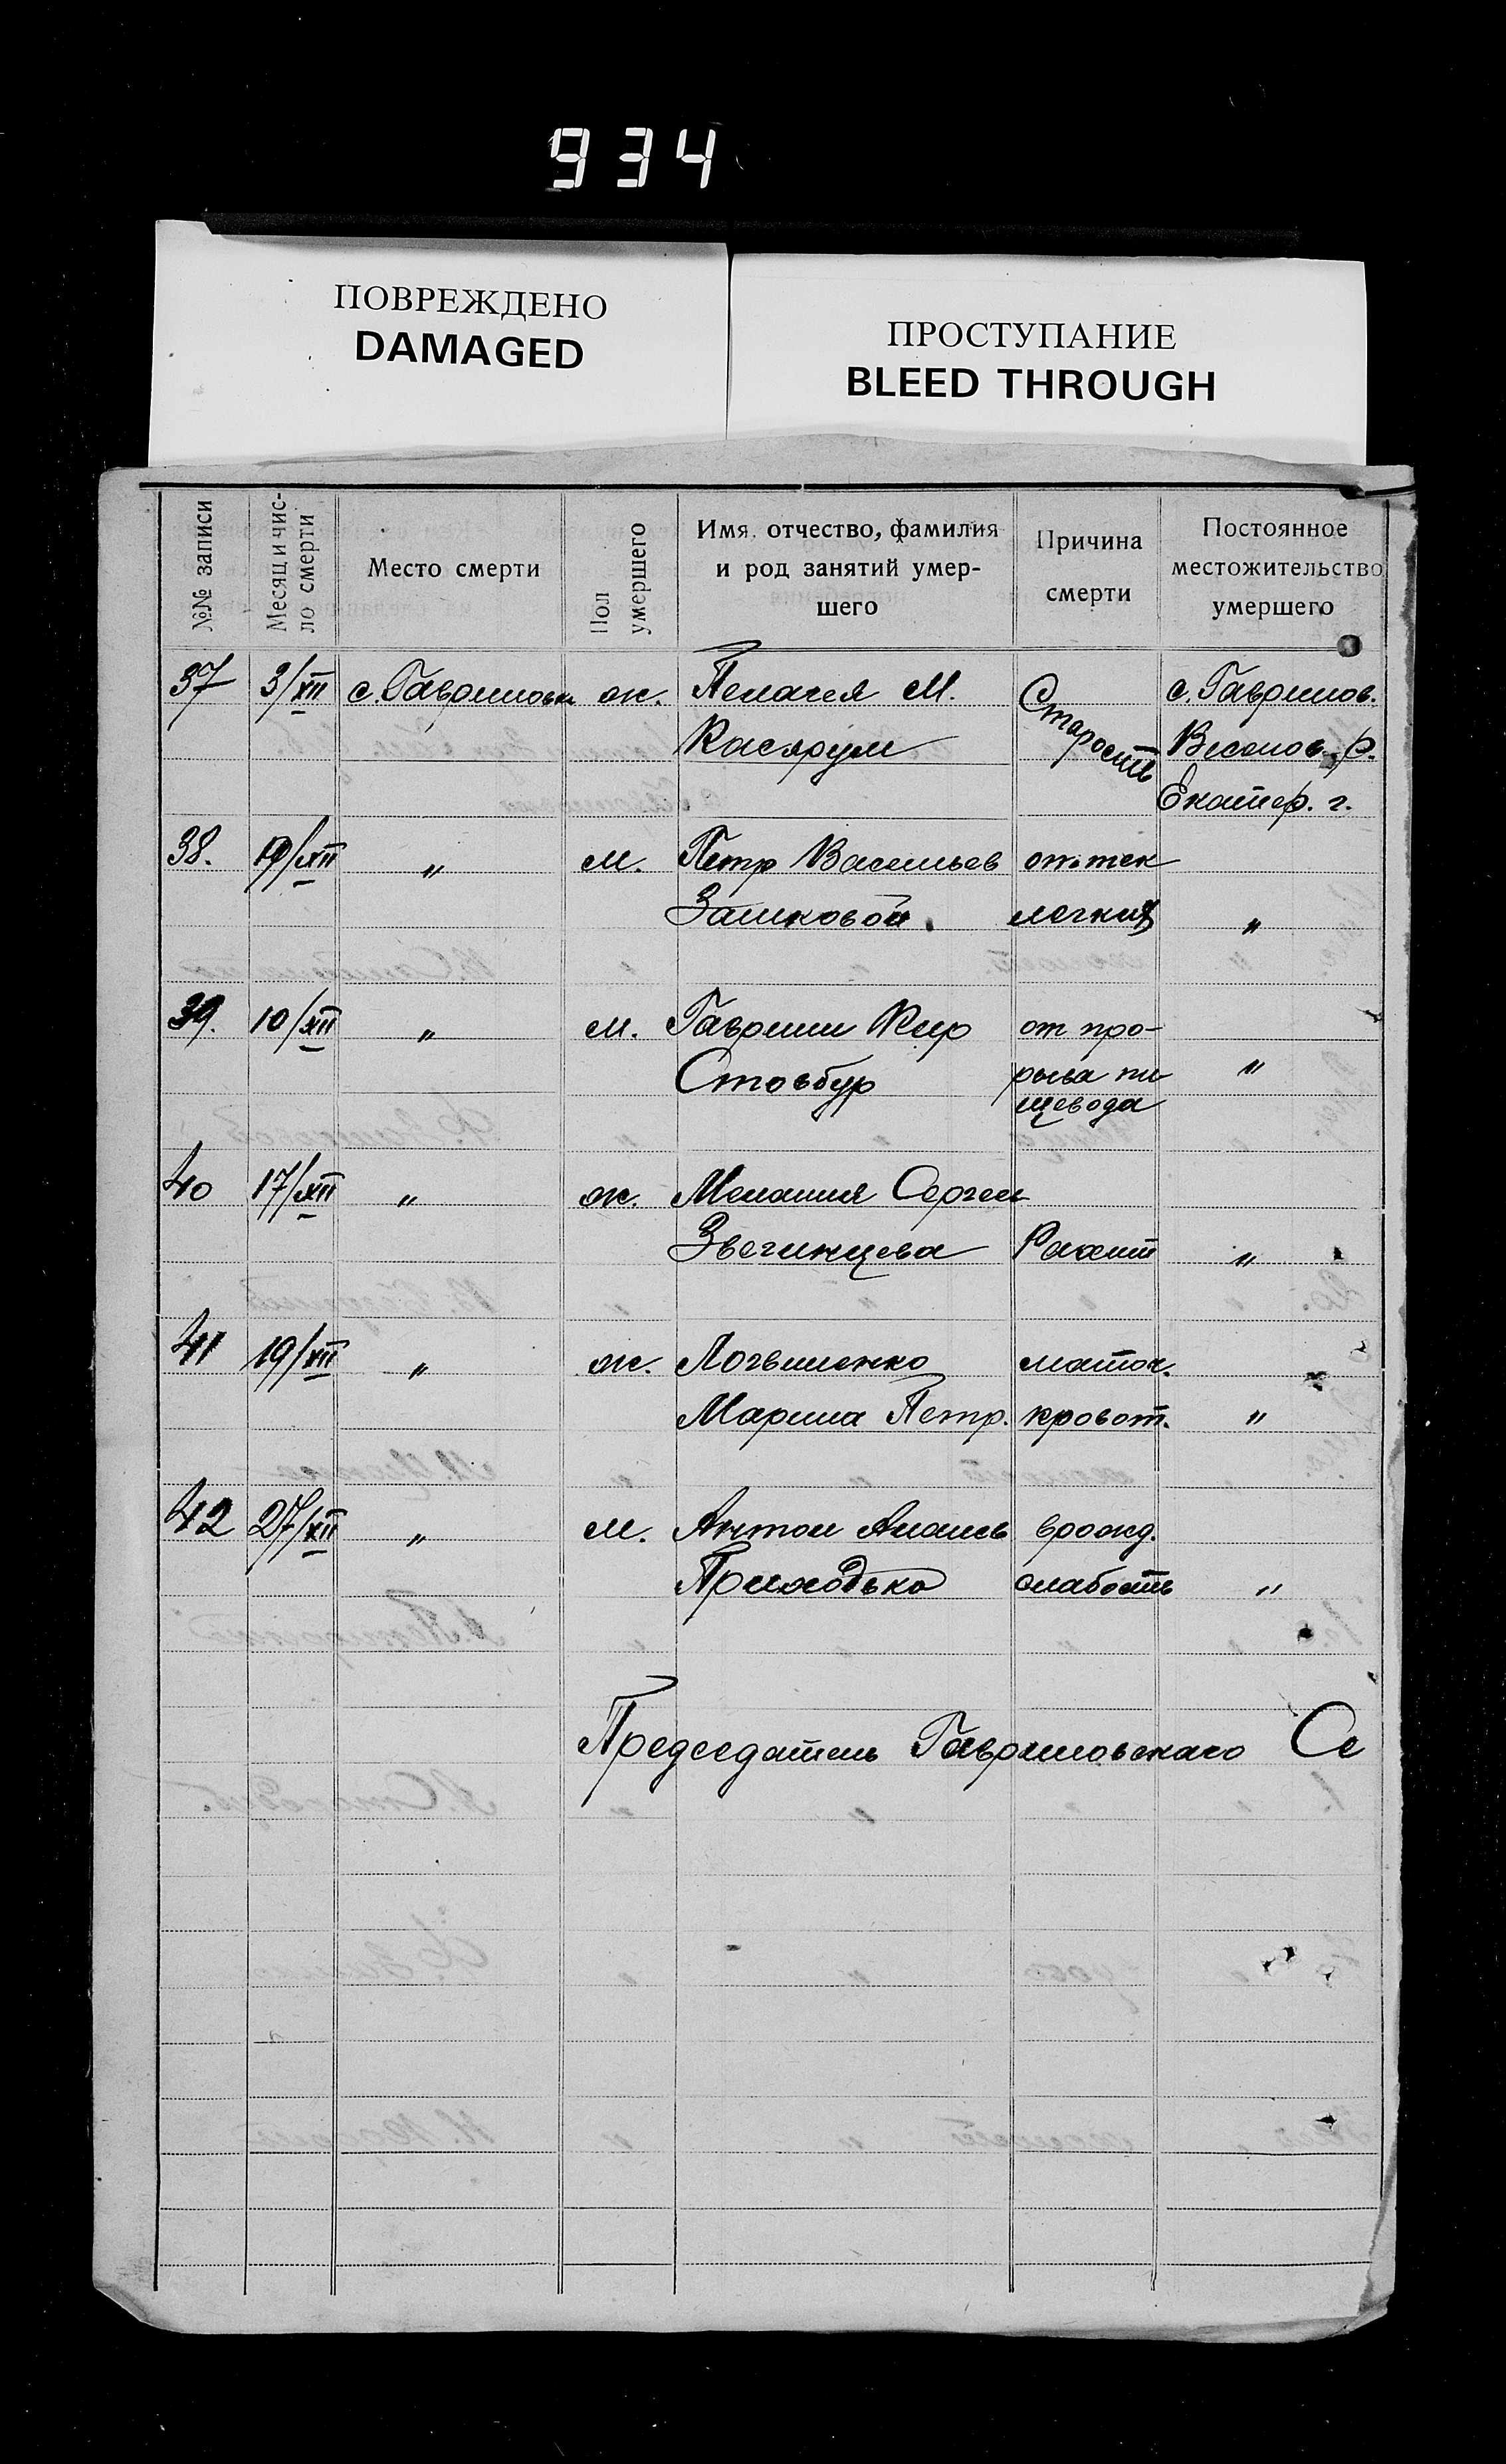 934
ПОВРЕЖДЕНО
DAMAGED
ПРОСТУПАНИЕ
BLEED THROUGH
№№ записи
Месяц и чис-
ло смерти
Место смерти
Пол
умершего
Имя, отчество, фамилия
и род занятий умер-
шего
Причина
смерти
Постоянное
местожительство
умершего
37 3/XII с. Гавриловка ж. Пелагея М. Старость с. Гаврилов.
р.
Екатер. г.
38. 19/XII " м. Петр Васильев от. тек
легких "
39. 10/XII " м. Гавриил Кир от про-
Стовбур рыва пи "
щевода
40 17/XII " ж. Мелания Сергеи
Звегинцева Рахит "
41 19/XII " ж. Логвиненко маточ.
Марина Петр. кровот. "
42 27/XII " м. Антон врожд.
Приходько слабость "
Председатель Гавриловскаго Се